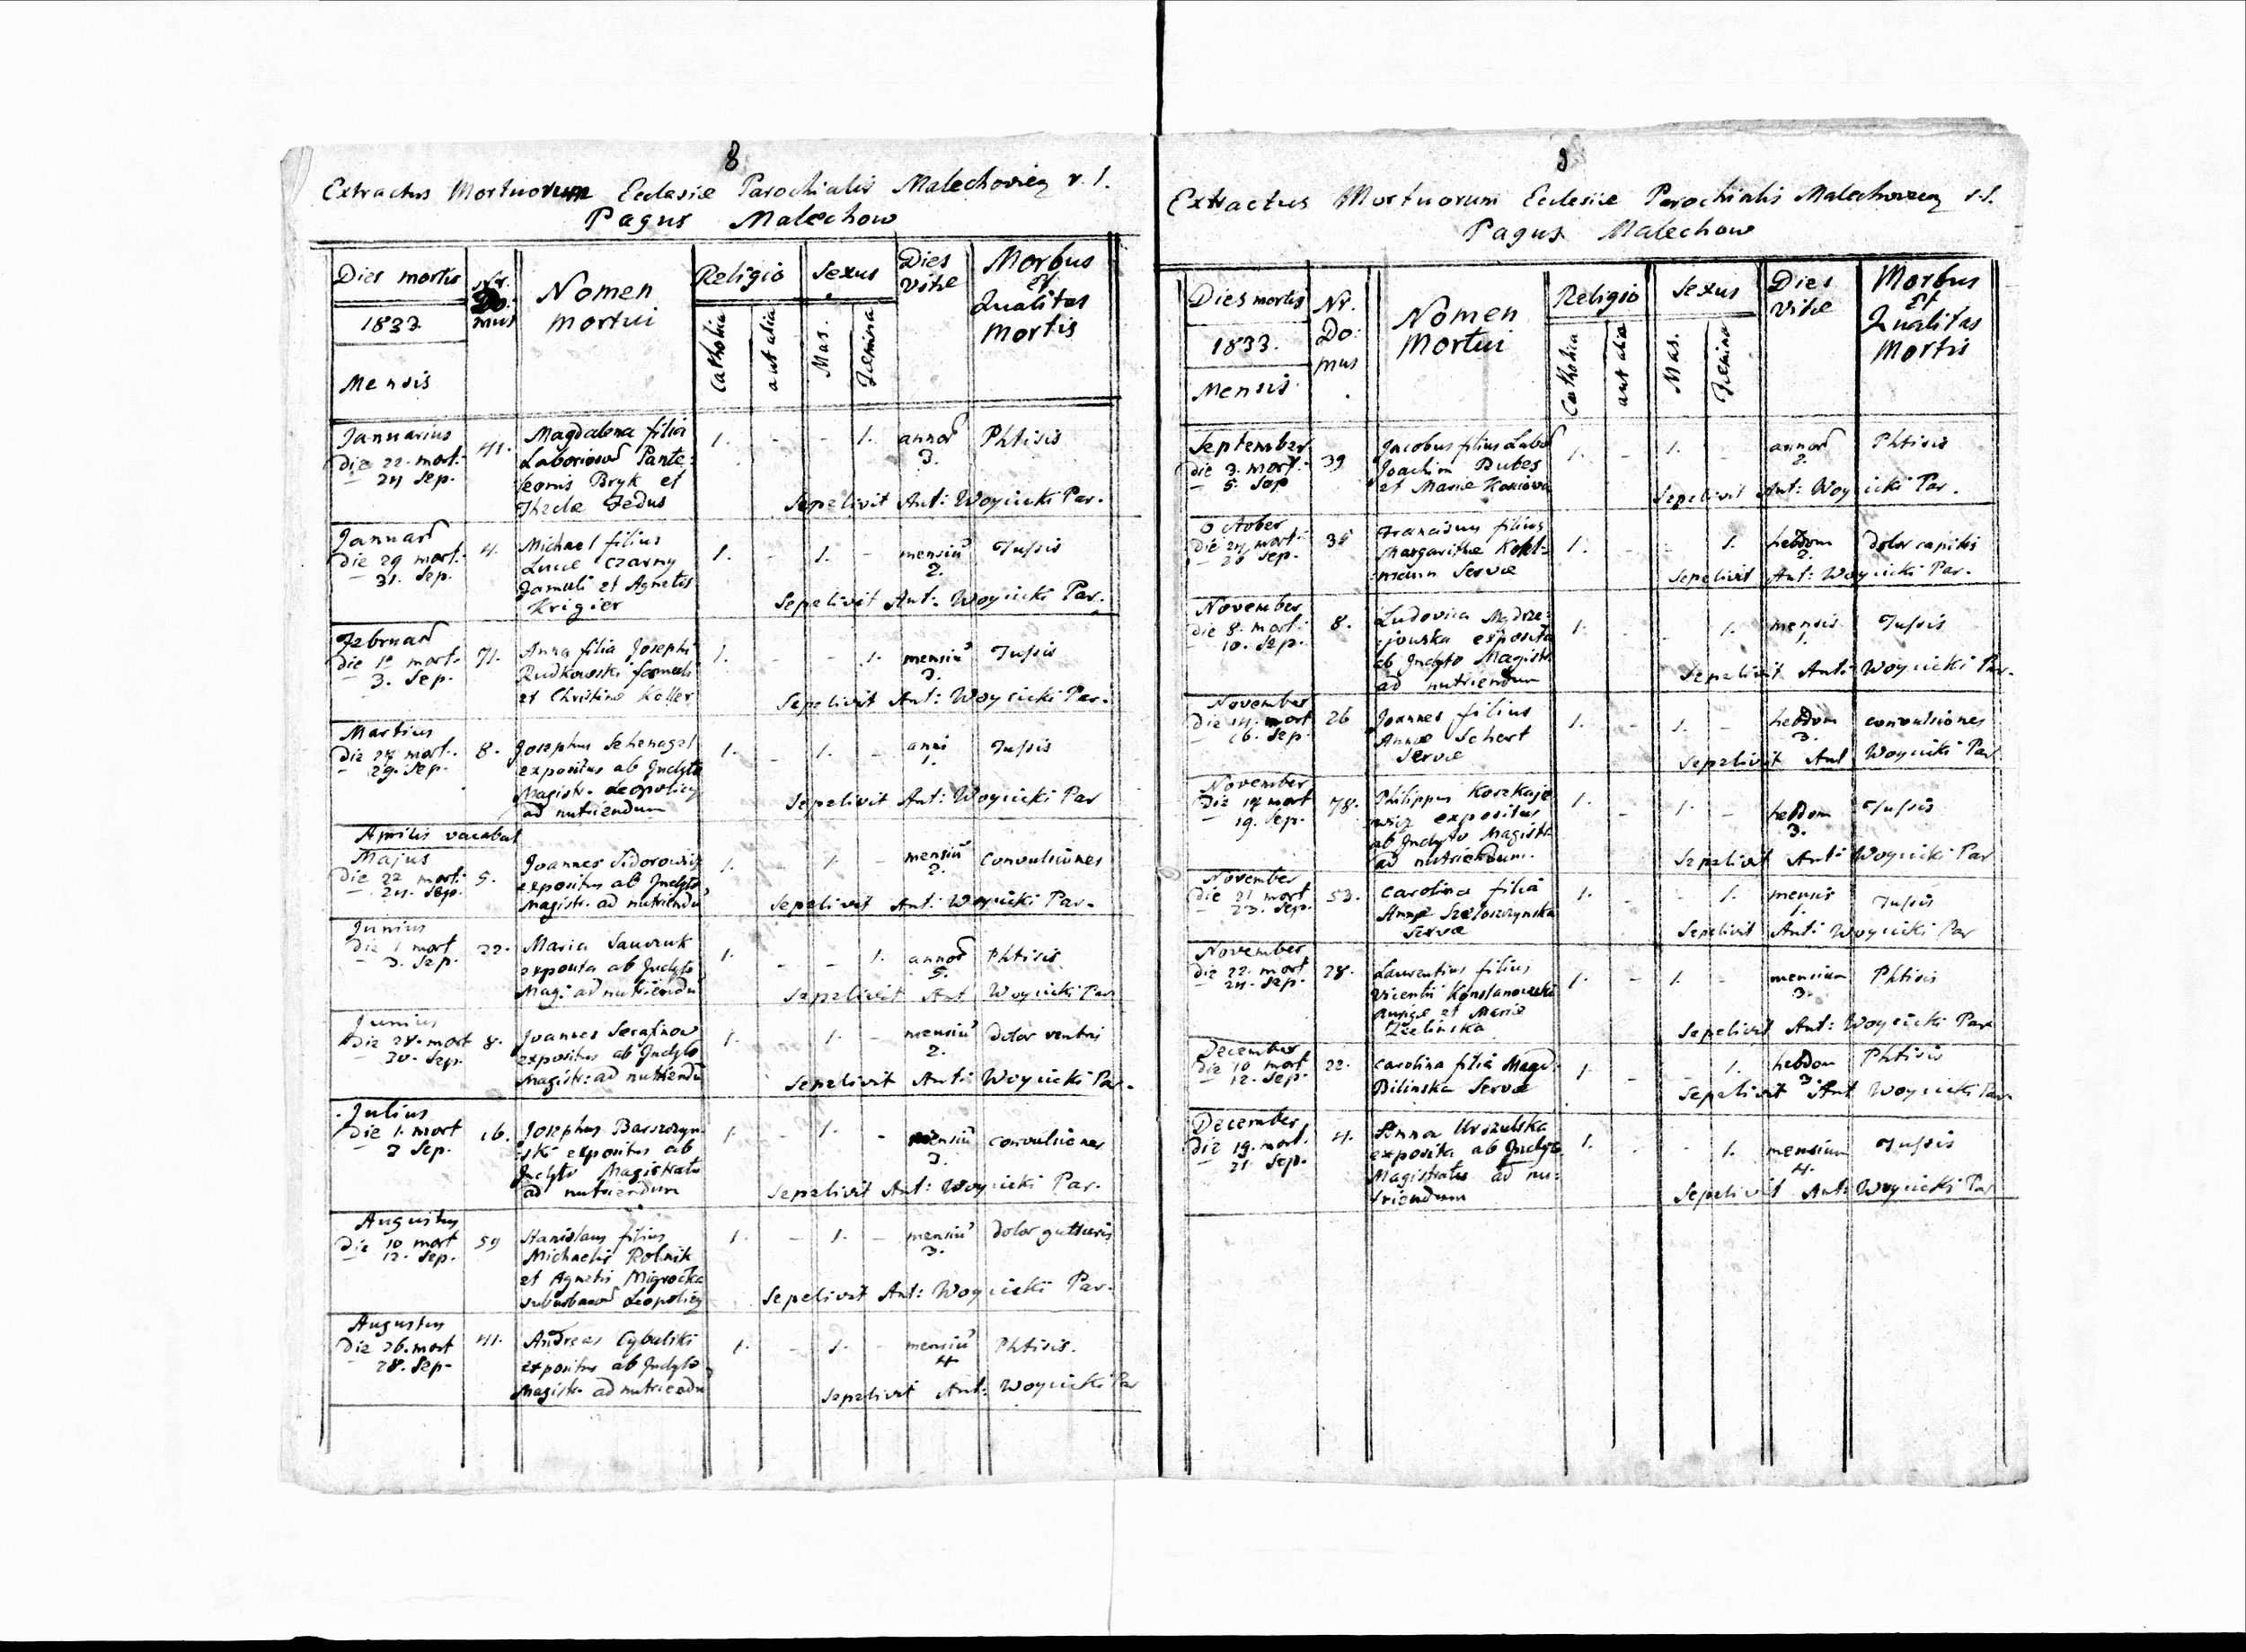 8
Extractus Mortuorum Ecclesiæ Parochialis Malechovien r. l.
Pagus Malechow
Dies mortis
1833
Mensis
Nr. Do: mus
Nomen
Mortui
Religio
Catholica
aut alia
Sexus
Mas.
Femina
Dies
vitæ
Morbus
et
Qualitas
Mortis
Januarius
Die 22. mort:
— 24 Sep.
41.
Magdalena filia
Laborioso Pante:
leonis Bryk et
Theclæ Fedus
1. - - 1.
annor
3.
Phtisis
Sepelivit Ant: Woycicki Par.
Januar
Die 29 mort:
— 31. Sep.
4.
Michael filius
Lucæ Czarny
Famuli et Agnetis
Krigier
1. - 1. -
mensiu
2.
Tussis
Sepelivit Ant: Woycicki Par.
Februar
Die 1a mort:
— 3. Sep.
71.
Anna filia Josephi
Rudkowski famuli
et Christinæ Koller
1. - - 1.
mensiu
3.
Tussis
Sepelivit Ant: Woycicki Par.
Martius
Die 27 mort:
— 29. Sep.
8.
Josephus Schenagel
expositus ab Indyto
Magistr. Leopolien
ad nutriendum
1. - 1. -
anni
1.
Tussis
Sepelivit Ant: Woycicki Par
Aprilis vacabat
Majus
Die 22 mort:
— 24. Sep.
5.
Joannes Sidorowicz
expositus ab Indyto
Magistr. ad nutriendu
1. - 1. -
mensiu
2.
Convulsiones
Sepelivit Ant: Woycicki Par.
Junius
Die 1 mort
— 3. Sep.
22.
Maria Sawczuk
exposita ab Indyto
Magi: ad nutriendu
1. - - 1.
annor
5.
Phtisis
Sepelivit Ant Woycicki Par
Junius
Die 28. mort
— 30. Sep.
8.
Joannes Serafinow
expositus ab Indyto
Magistr: ad nutriendu
1. - 1. -
mensiu
2.
dolor ventris
Sepelivit Ant: Woycicki Par.
Julius
Die 1. mort
— 3 Sep.
16.
Josephus Barszczyn
ski expositus ab
Indyto Magistratu
ad nutriendum
1. - 1. -
mensiu
3.
convulsiones
Sepelivit Ant: Woycicki Par.
Augustus
Die 10 mort
— 12. Sep.
59
Stanislaus filius
Michaelis Rolnik
et Agnetis Migrocka
suburbanor Leopolien
1. - 1. -
mensiu
3.
dolor gutturis
Sepelivit Ant: Woycicki Par.
Augustus
Die 26. mort
— 28. Sep.
41.
Andreas Cybulski
expositus ab Indyto
Magistr. ad nutriendu
1. - 1. -
mensiu
4
Phtisis.
Sepelivit Ant: Woycicki Par
9
Extractus Mortuorum Ecclesiæ Parochialis Malechovien r. l.
Pagus Malechow
Dies mortis
1833.
Mensis
Nr.
Do:
mus
Nomen
Mortui
Religio
Catholica
aut alia
Sexus
Mas.
Femina
Dies
vitæ
Morbus
et
Qualitas
Mortis
September
Die 3. mort:
— 5. Sep
39
Jacobus filius Labor
Joachim Bubes
et Mariæ
1. - 1. -
annor
2.
Phtisis
Sepelivit Ant: Woycicki Par.
October
Die 24 mort:
— 26 Sep.
35
Franciscus filius
Margarithæ Kohl-
mann Servæ
1. - - 1.
hebdom
2.
dolor capitis
Sepelivit Ant: Woycicki Par.
November
Die 8. mort:
— 10. Sep.
8.
Ludovica Mędrze:
jowska exposita
ab Indyto Magistr.
ad nutriendum
1. - - 1.
mensis
1.
Tussis
Sepelivit Ant: Woycicki Par.
November
Die 14. mort
— 16. Sep.
26
Joannes filius
Annæ Schert
Servæ
1. - 1. -
hebdom
3.
convulsiones
Sepelivit Ant Woycicki Par
November
Die 17 mort
— 19. Sep.
78.
Philippus Korzkaje
wicz expositus
ab Indyto Magistr.
ad nutriendum.
1. - 1. -
hebdom
3.
Tussis
Sepelivit Ant: Woycicki Par
November
Die 21 mort
— 23. Sep.
53.
Carolina filia
Annæ Szeloszynska
Servæ
1. - - 1.
mensis
1.
Tussis
Sepelivit Ant: Woycicki Par
November
Die 22. mort
— 24. Sep.
28.
Laurentius filius
Vicentii Konstanowski
Aurigæ et Mariæ
Zielinska
1. - 1. -
mensium
3.
Phtisis
Sepelivit Ant: Woycicki Par
December
Die 10 mort
— 12. Sep.
22.
Carolina filia Magd:
Bilinska Servæ
1. - - 1.
hebdom
3.
Phtisis
Sepelivit Ant Woycicki Par
December
Die 19. mort.
— 21. Sep.
4.
Anna Urszulska
exposita ab Indyto
Magistratu ad nu:
triendum
1. - - 1.
mensium
4.
Tussis
Sepelivit Ant: Woycicki Par